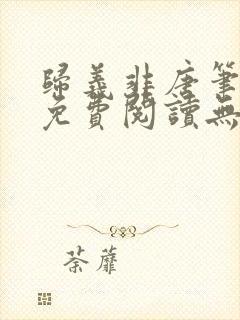 歸義非唐筆
免費閱讀無
荼蘼